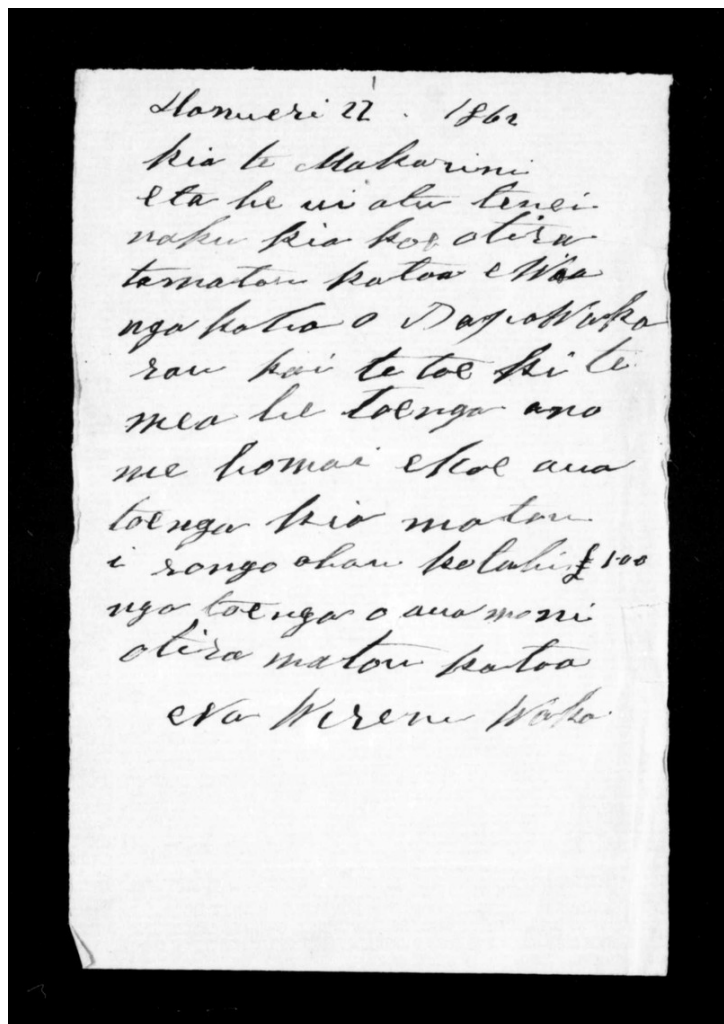 Hanueri 22 . 1862
kia te Makarini
eta he ui atu tenei
naku kia koe otira
tamatou katoa e
nga katoa o
rau kai te toe ki te
mea he toenga ano
me homai ekoe aua
toenga kia matou
i rongo ahau kotahi £100
nga toenga o aua moni
otira matou katoa
eNa Wiremu Waka